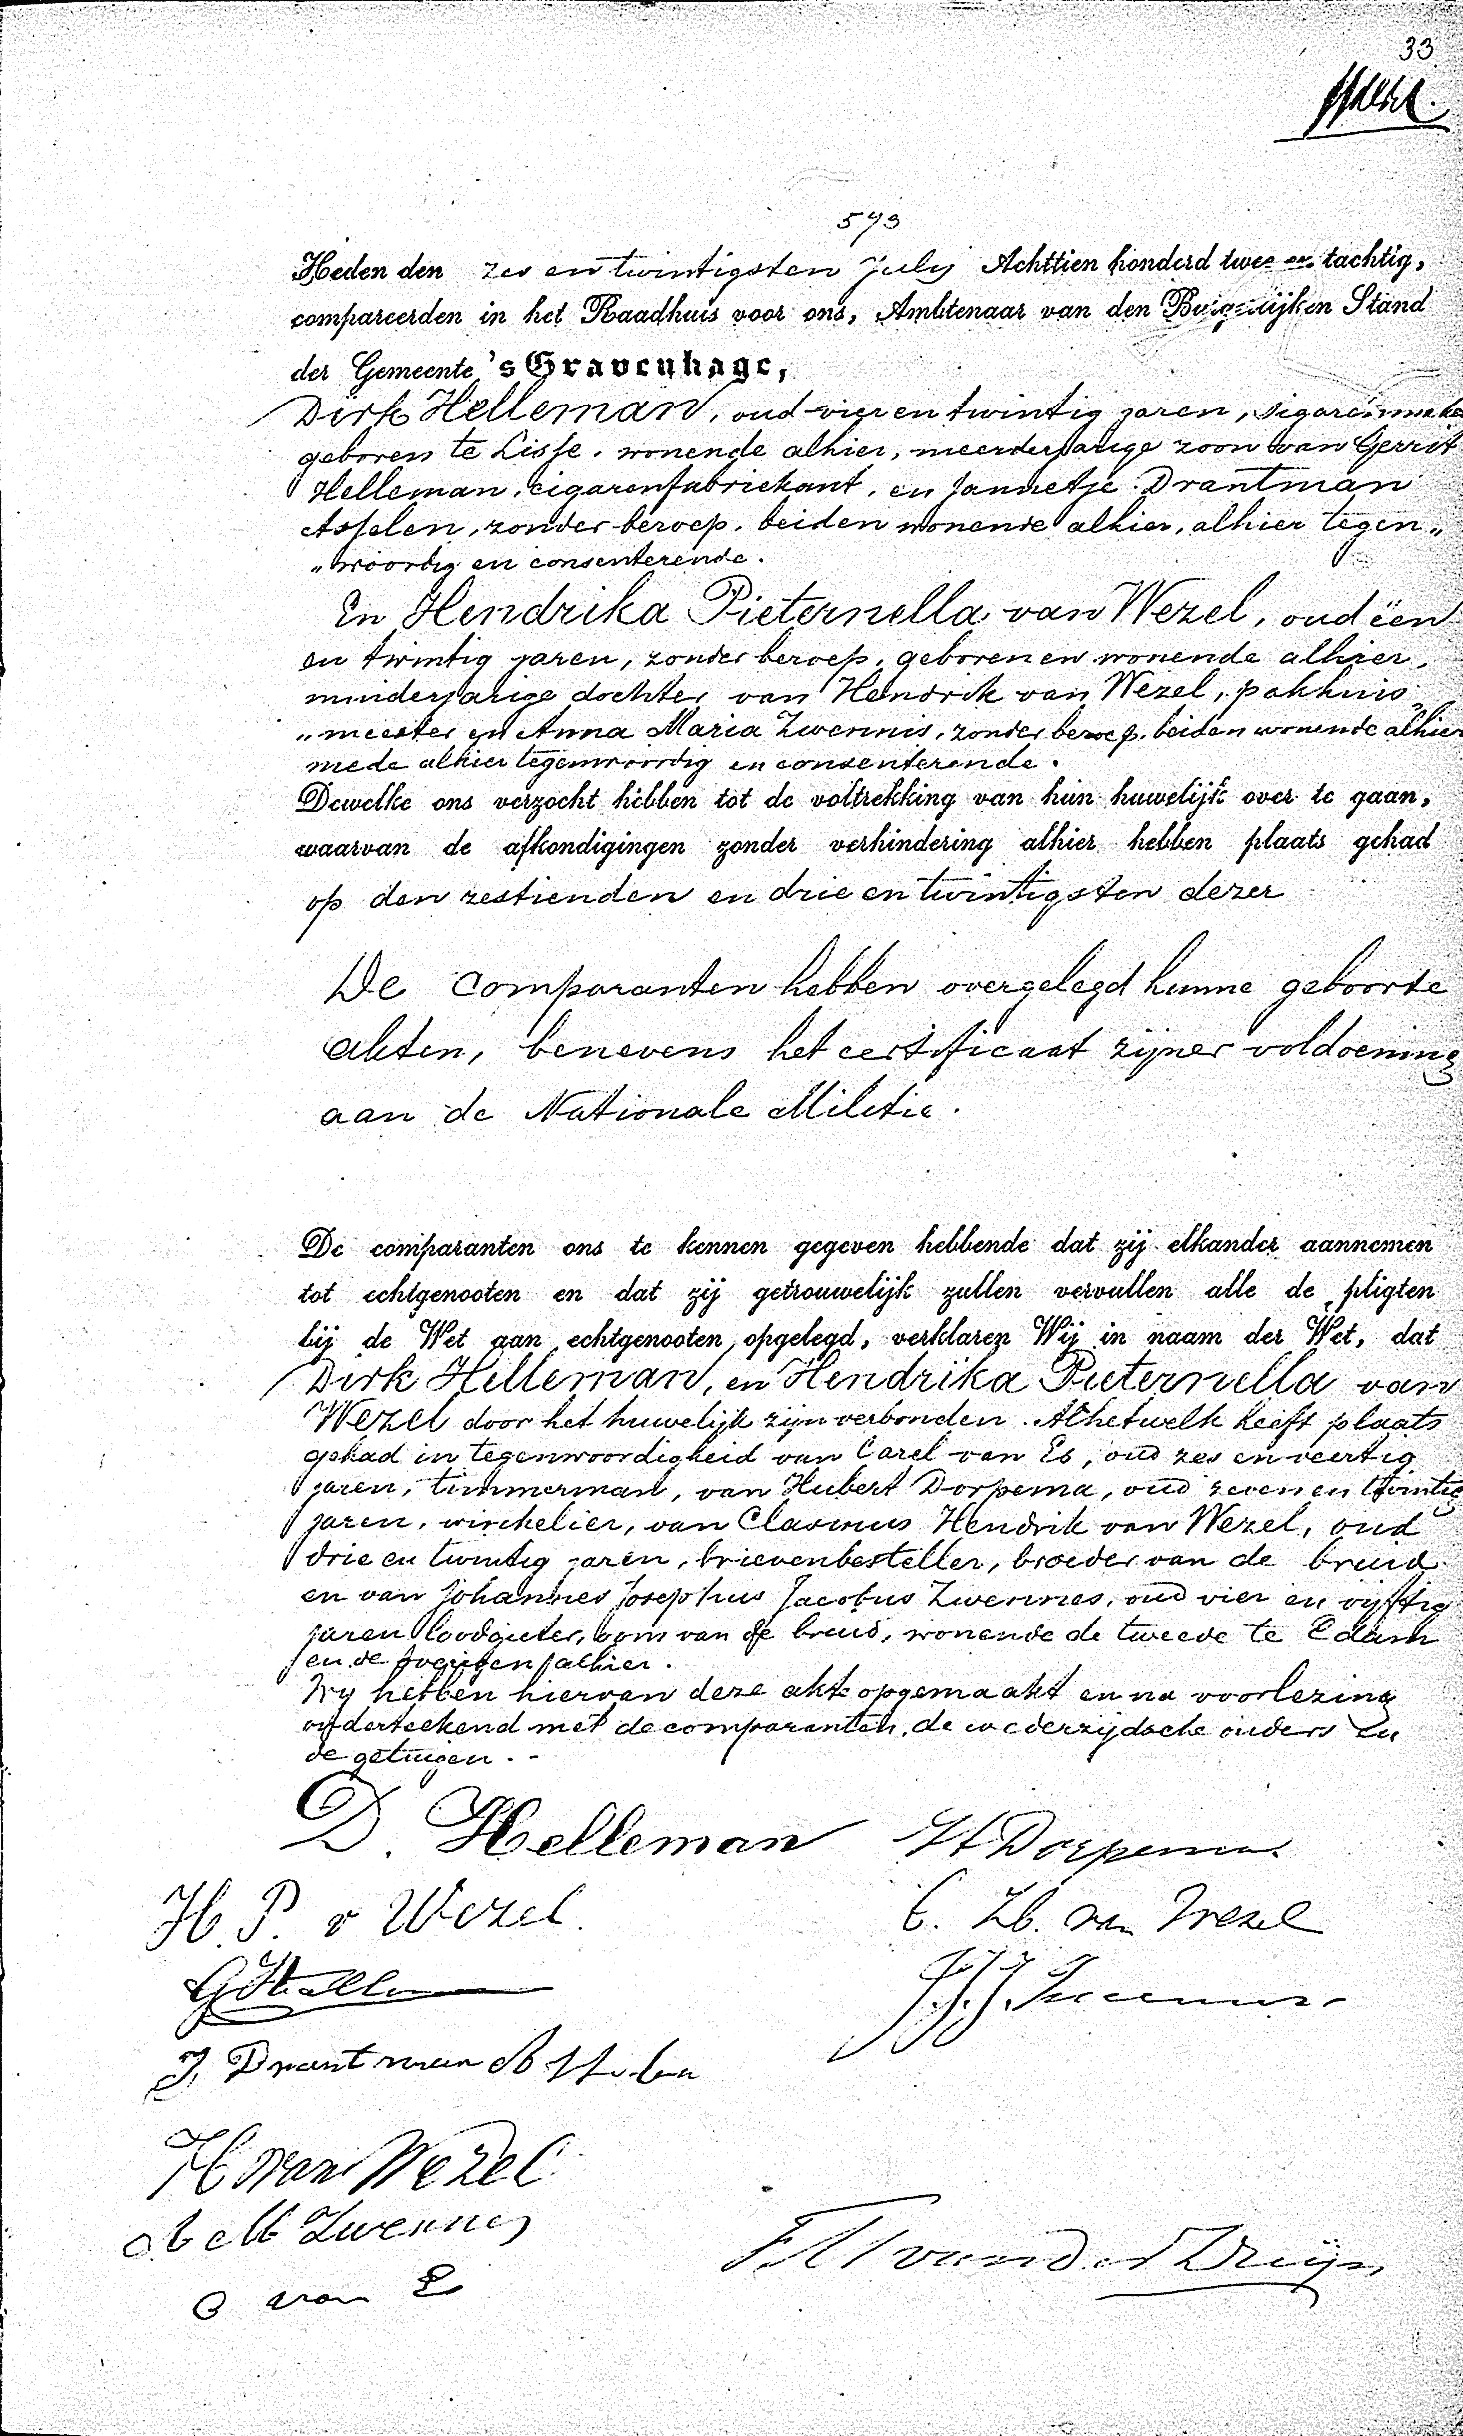 33
593
Heden den zes en twintigsten July Achttien honderd twee en tachtig,
compareerden in het Raadhuis voor ons, Ambtenaar van den Burgerlijken Stand
der Gemeente 's Gravenhage,
Dirk Helleman, oud vier en twintig jaren, sigarenmaker
geboren te Lisse, wonende alhier, meerderjarige zoon van Gerrit
Helleman, cigarenfabriekant, en Jannetje Drantman
Asselen, zonder beroep, beiden wonende alhier, alhier tegen„
„woordig en consenterende.
En Hendrika Pieternella van Wezel, oud één
en twintig jaren, zonder beroep, geboren en wonende alhier,
minderjarige dochter van Hendrik van Wezel, pakhuis„
„meester en Anna Maria Zwennis, zonder beroep, beiden wonende alhier
mede alhier tegenwoordig en consenterende.
Dewelke ons verzocht hebben tot de voltrekking van hun huwelijk over te gaan,
waarvan de afkondigingen zonder verhindering alhier hebben plaats gehad
op den zestienden en drie en twintigsten dezer
De comparanten hebben overgelegd hunne geboorte
akten, benevens het certificaat zijner voldoening
aan de Nationale Militie.
De comparanten ons te kennen gegeven hebbende dat zij elkander aannemen
tot echtgenooten en dat zij getrouwelijk zullen vervullen alle de pligten
bij de Wet aan echtgenooten opgelegd, verklaren Wij in naam der Wet, dat
Dirk Helleman, en Hendrika Pieternella van
Wezel door het huwelijk zijn verbonden. Al hetwelk heeft plaats
gehad in tegenwoordigheid van Carel van Es, oud zes en veertig
jaren, timmerman, van Hubert Dorpema, oud zeven en twintig
jaren, winkelier, van Clasinus Hendrik van Wezel, oud
drie en twintig jaren, brievenbesteller, broeder van de bruid
en van Johannes Josephus Jacobus Zwennes, oud vier en vijftig
jaren loodgieter, oom van de bruid, wonende de tweede te Edam
en de overigen alhier.
Wy hebben hiervan deze akte opgemaakt en na voorlezing
onderteekend met de comparanten, de wederzijdsche ouders en
de getuigen.
D. Helleman H Dorpema
H. P. v Wezel. C. H. van Wezel
G Helleman J. J. J. Zwennes
J, Drantman Asselen
H van Wezel
A M Zwennes
C van E